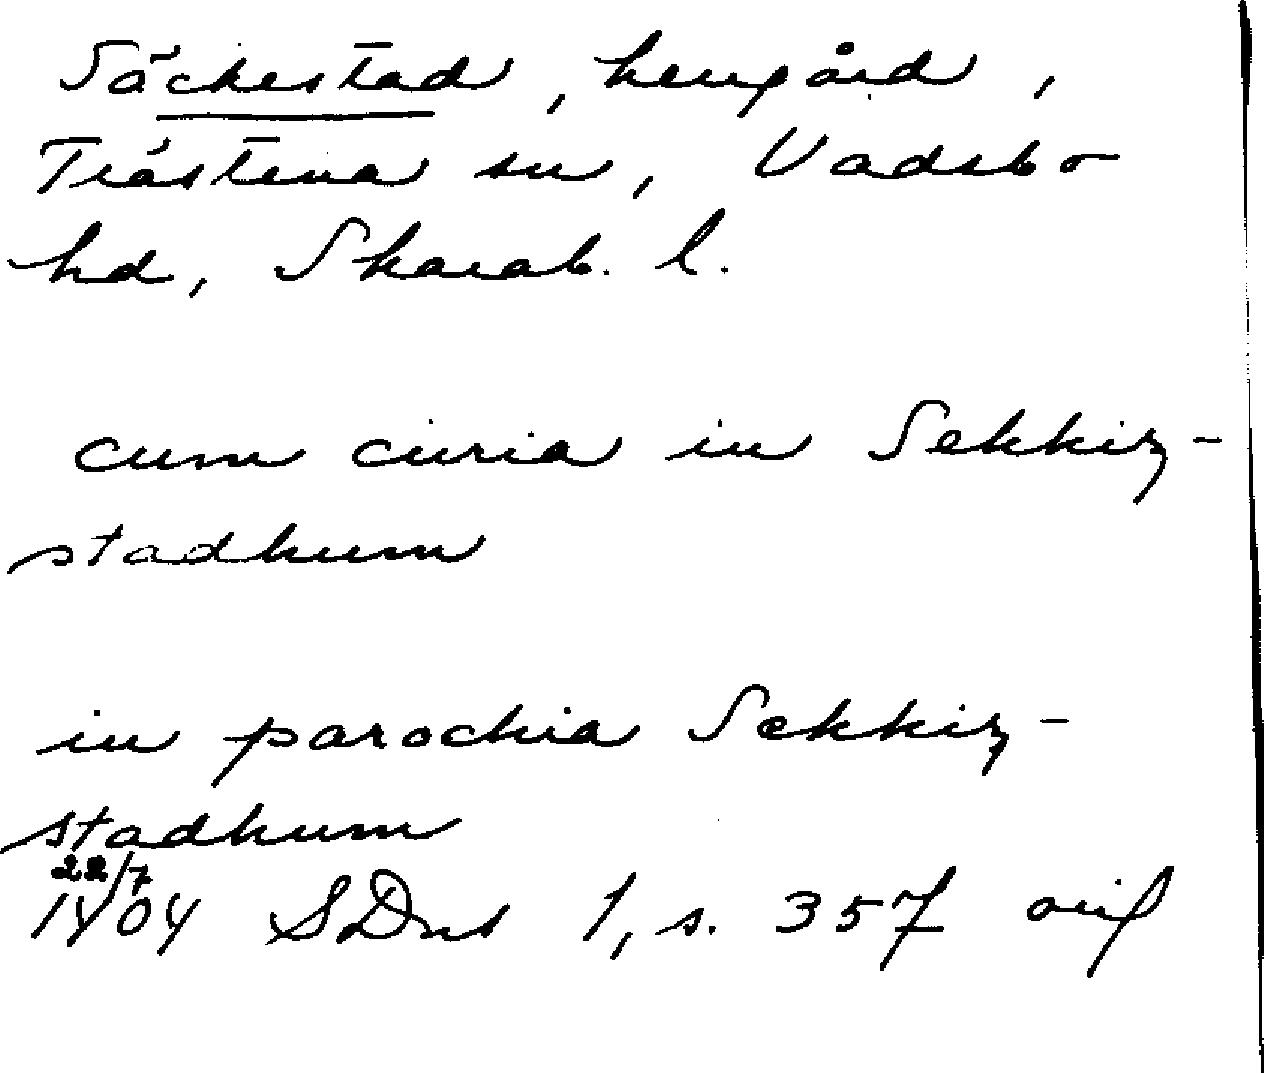 Säckestad, herrgård,
Trästena sn, Vadsbo
hd, Skarab. l.
cum curia in Sekkiz-
stadhum
in parochia Sekkiz-
stadhum
22/7
1404 SDns 1, s. 357 orig